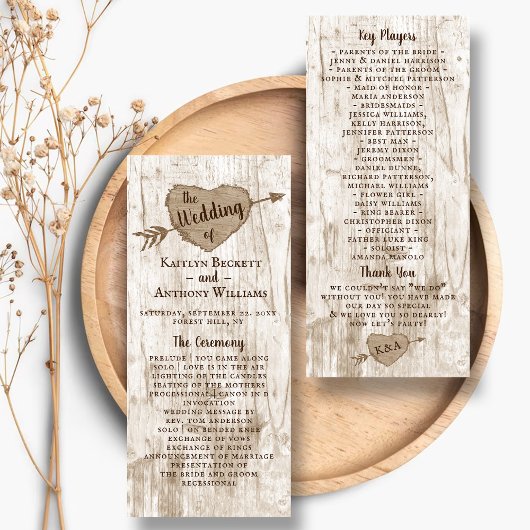 the
Wedding
of
Kaitlyn Beckett
– and –
Anthony Williams
Saturday, September 22, 20XX
Forest Hill, NY
The Ceremony
Prelude | You Came Along
Solo | Love Is In The Air
Lighting of the Candles
Seating of the Mothers
Processional | Canon in D
Invocation
Wedding Message by
Rev. Tom Anderson
Solo | On Bended Knee
Exchange of Vows
Exchange of Rings
Announcement of Marriage
Presentation of
the Bride and Groom
Recessional
Key Players
– Parents of the Bride –
Jenny & Daniel Harrison
– Parents of the Groom –
Sophie & Mitchel Patterson
– Maid of Honor –
Maria Anderson
– Bridesmaids –
Jessica Williams,
Kelly Harrison,
Jennifer Patterson
– Best Man –
Jeremy Dixon
– Groomsmen –
Daniel Dunne,
Richard Patterson,
Michael Williams
– Flower Girl –
Daisy Williams
– Ring Bearer –
Christopher Dixon
– Officiant –
Father Luke King
– Soloist –
Amanda Manolo
Thank You
We couldn't say "We Do"
without you! You have made
our day so special
& we love you so dearly!
Now let's party!
K & A